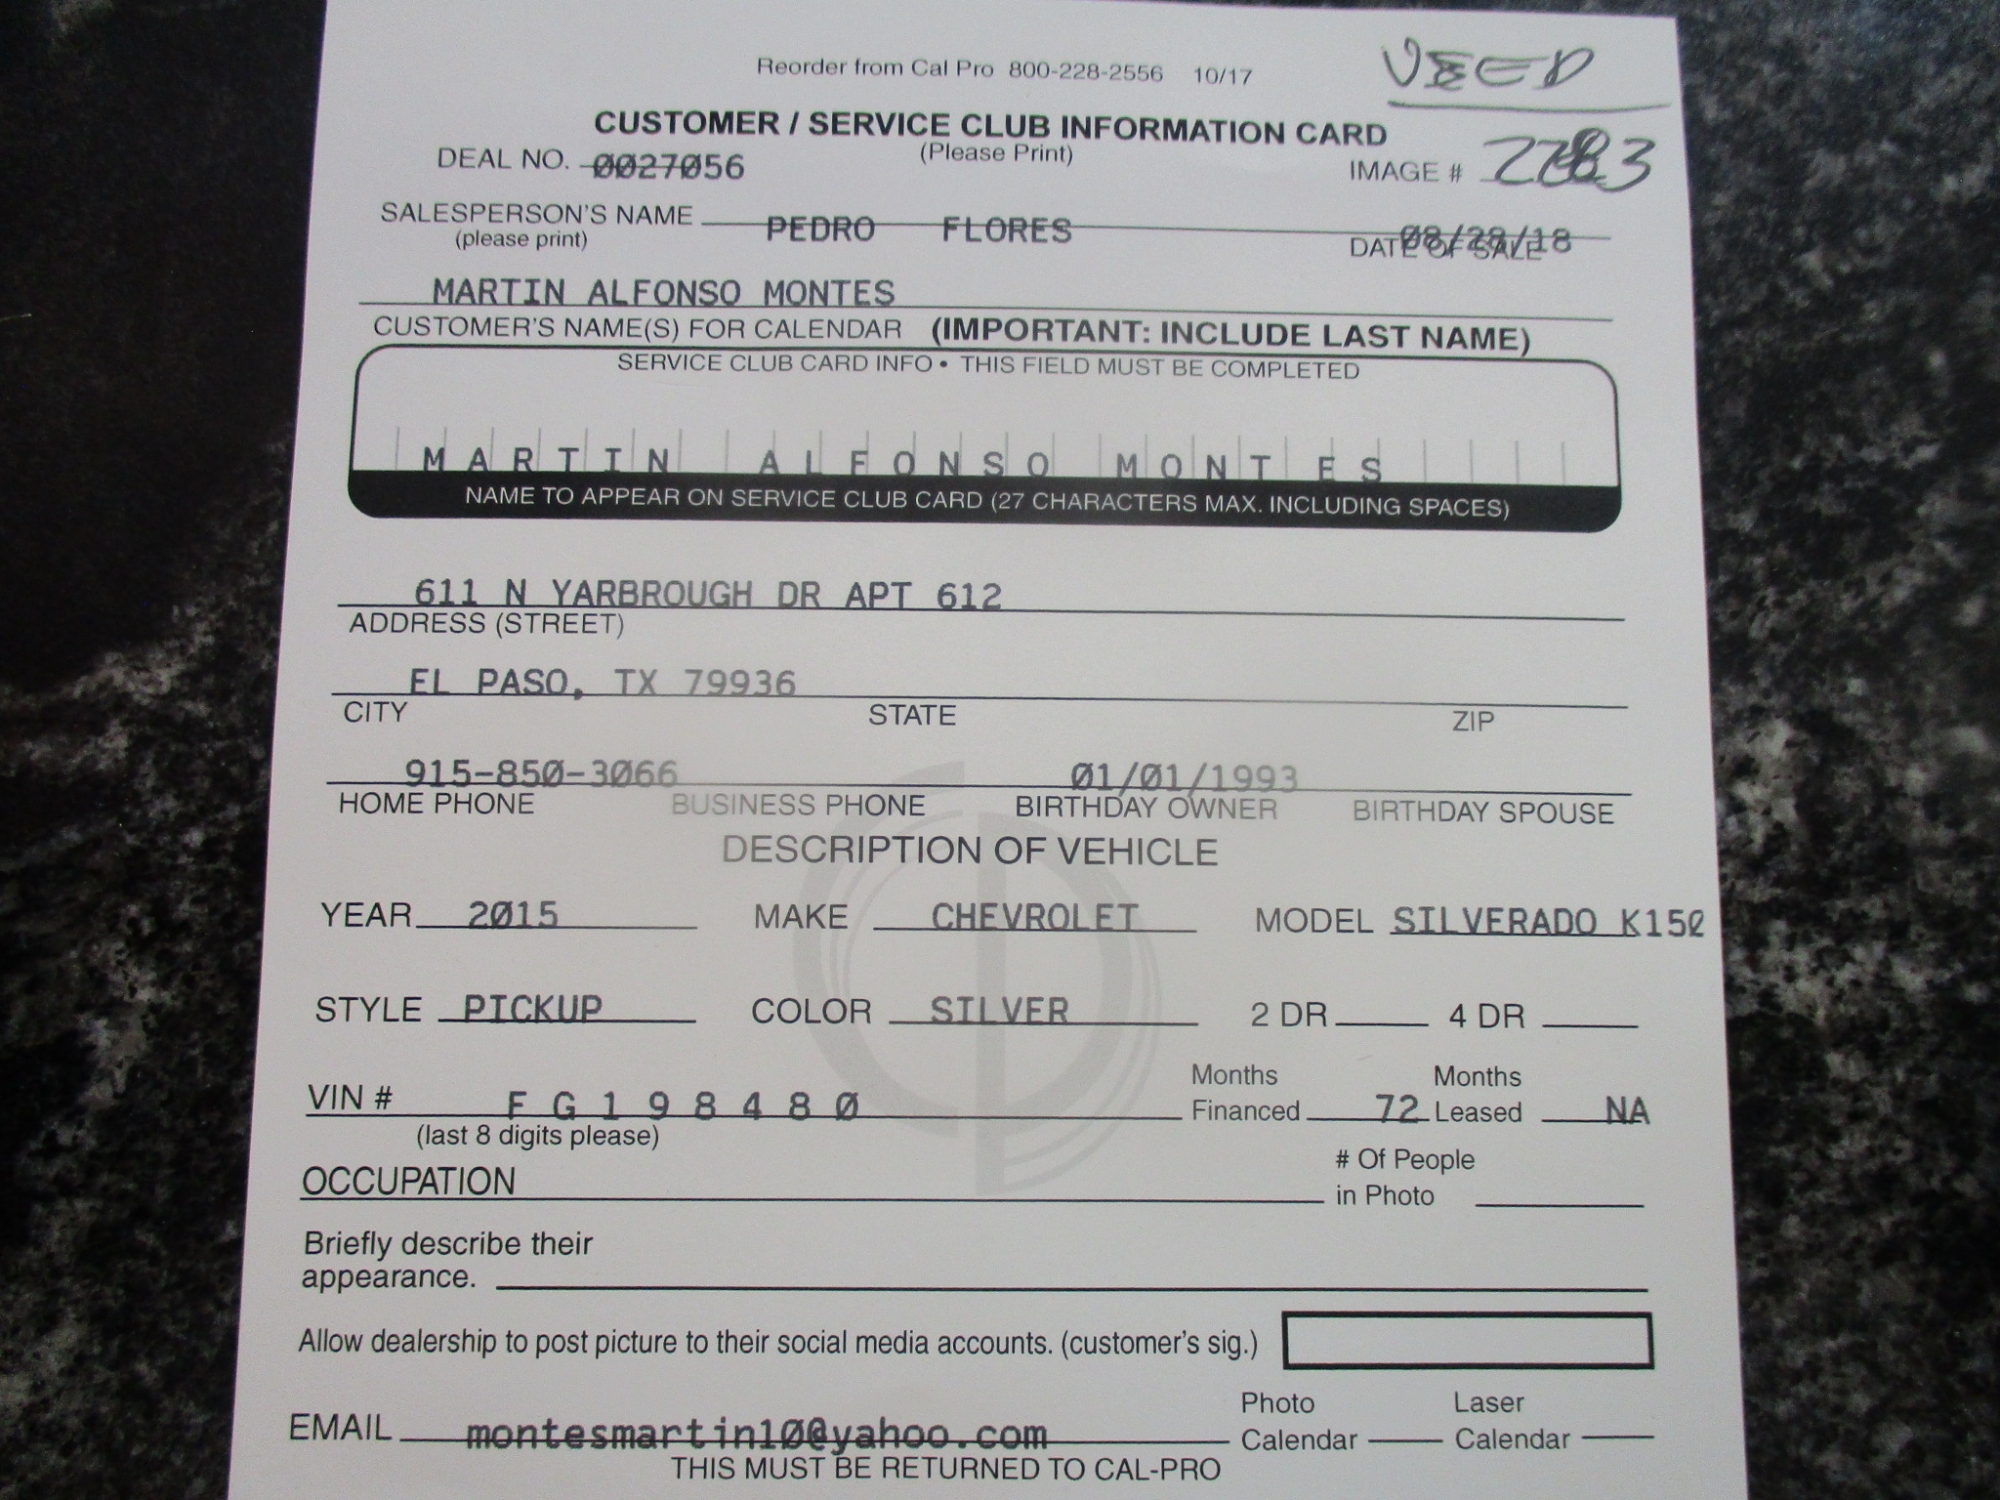 Reorder from Cal Pro 800-228-2556 10/17
CUSTOMER / SERVICE CLUB INFORMATION CARD
DEAL NO. 0027056 (Please Print) IMAGE #
SALESPERSON'S NAME PEDRO FLORES
(please print) DATE OF SALE 08/28/18
MARTIN ALFONSO MONTES
CUSTOMER'S NAME(S) FOR CALENDAR (IMPORTANT: INCLUDE LAST NAME)
SERVICE CLUB CARD INFO • THIS FIELD MUST BE COMPLETED
MARTIN ALFONSO MONTES
NAME TO APPEAR ON SERVICE CLUB CARD (27 CHARACTERS MAX. INCLUDING SPACES)
611 N YARBROUGH DR APT 612
ADDRESS (STREET)
EL PASO, TX 79936
CITY STATE ZIP
915-850-3066 01/01/1993
HOME PHONE BUSINESS PHONE BIRTHDAY OWNER BIRTHDAY SPOUSE
DESCRIPTION OF VEHICLE
YEAR 2015 MAKE CHEVROLET MODEL SILVERADO K150
STYLE PICKUP COLOR SILVER 2 DR 4 DR
Months Months
VIN # FG198480 Financed 72 Leased NA
(last 8 digits please)
# Of People
OCCUPATION in Photo
Briefly describe their
appearance.
Allow dealership to post picture to their social media accounts. (customer's sig.)
Photo Laser
EMAIL montesmartin10@yahoo.com Calendar Calendar
THIS MUST BE RETURNED TO CAL-PRO